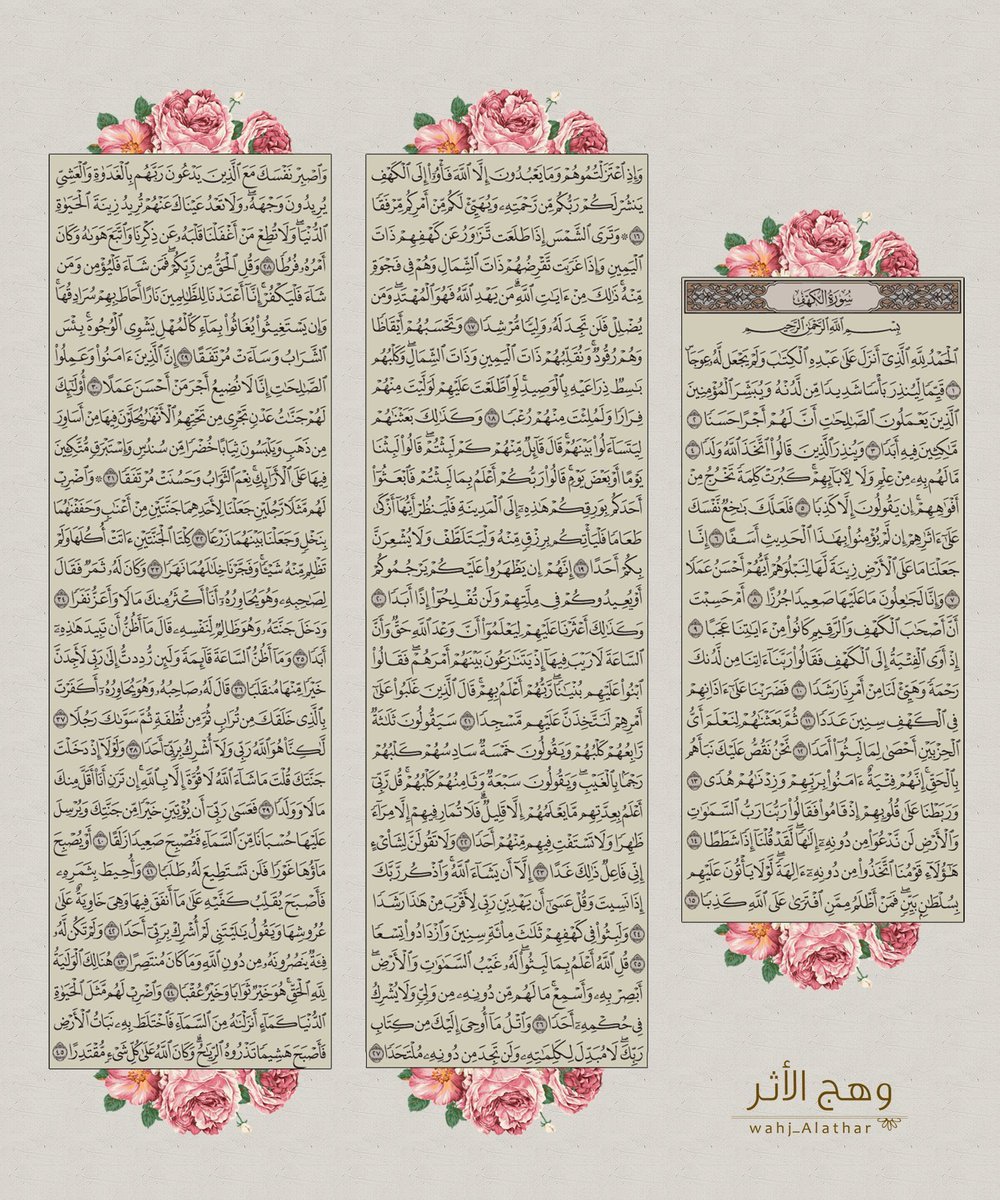 سُورَةُ الكَهۡفِ
بِسۡمِ ٱللَّهِ ٱلرَّحۡمَٰنِ ٱلرَّحِيمِ
ٱلۡحَمۡدُ لِلَّهِ ٱلَّذِيٓ أَنزَلَ عَلَىٰ عَبۡدِهِ ٱلۡكِتَٰبَ وَلَمۡ يَجۡعَل لَّهُۥ عِوَجَاۜ
١ قَيِّمٗا لِّيُنذِرَ بَأۡسٗا شَدِيدٗا مِّن لَّدُنۡهُ وَيُبَشِّرَ ٱلۡمُؤۡمِنِينَ
ٱلَّذِينَ يَعۡمَلُونَ ٱلصَّٰلِحَٰتِ أَنَّ لَهُمۡ أَجۡرًا حَسَنٗا ٢
مَّٰكِثِينَ فِيهِ أَبَدٗا ٣ وَيُنذِرَ ٱلَّذِينَ قَالُواْ ٱتَّخَذَ ٱللَّهُ وَلَدٗا ٤
مَّا لَهُم بِهِۦ مِنۡ عِلۡمٖ وَلَا لِأٓبَآئِهِمۡۚ كَبُرَتۡ كَلِمَةٗ تَخۡرُجُ مِنۡ
أَفۡوَٰهِهِمۡۚ إِن يَقُولُونَ إِلَّا كَذِبٗا ٥ فَلَعَلَّكَ بَٰخِعٞ نَّفۡسَكَ
عَلَىٰٓ ءَاثَٰرِهِمۡ إِن لَّمۡ يُؤۡمِنُواْ بِهَٰذَا ٱلۡحَدِيثِ أَسَفًا ٦ إِنَّا
جَعَلۡنَا مَا عَلَى ٱلۡأَرۡضِ زِينَةٗ لَّهَا لِنَبۡلُوَهُمۡ أَيُّهُمۡ أَحۡسَنُ عَمَلٗا
٧ وَإِنَّا لَجَٰعِلُونَ مَا عَلَيۡهَا صَعِيدٗا جُرُزًا ٨ أَمۡ حَسِبۡتَ
أَنَّ أَصۡحَٰبَ ٱلۡكَهۡفِ وَٱلرَّقِيمِ كَانُواْ مِنۡ ءَايَٰتِنَا عَجَبًا ٩
إِذۡ أَوَى ٱلۡفِتۡيَةُ إِلَى ٱلۡكَهۡفِ فَقَالُواْ رَبَّنَآ ءَاتِنَا مِن لَّدُنكَ
رَحۡمَةٗ وَهَيِّئۡ لَنَا مِنۡ أَمۡرِنَا رَشَدٗا ١٠ فَضَرَبۡنَا عَلَىٰٓ ءَاذَانِهِمۡ
فِي ٱلۡكَهۡفِ سِنِينَ عَدَدٗا ١١ ثُمَّ بَعَثۡنَٰهُمۡ لِنَعۡلَمَ أَيُّ
ٱلۡحِزۡبَيۡنِ أَحۡصَىٰ لِمَا لَبِثُوٓاْ أَمَدٗا ١٢ نَّحۡنُ نَقُصُّ عَلَيۡكَ نَبَأَهُم
بِٱلۡحَقِّۚ إِنَّهُمۡ فِتۡيَةٌ ءَامَنُواْ بِرَبِّهِمۡ وَزِدۡنَٰهُمۡ هُدٗى ١٣
وَرَبَطۡنَا عَلَىٰ قُلُوبِهِمۡ إِذۡ قَامُواْ فَقَالُواْ رَبُّنَا رَبُّ ٱلسَّمَٰوَٰتِ
وَٱلۡأَرۡضِ لَن نَّدۡعُوَاْ مِن دُونِهِۦٓ إِلَٰهٗاۖ لَّقَدۡ قُلۡنَآ إِذٗا شَطَطًا ١٤
هَٰٓؤُلَآءِ قَوۡمُنَا ٱتَّخَذُواْ مِن دُونِهِۦٓ ءَالِهَةٗۖ لَّوۡلَا يَأۡتُونَ عَلَيۡهِم
بِسُلۡطَٰنِۭ بَيِّنٖۖ فَمَنۡ أَظۡلَمُ مِمَّنِ ٱفۡتَرَىٰ عَلَى ٱللَّهِ كَذِبٗا ١٥
وَإِذِ ٱعۡتَزَلۡتُمُوهُمۡ وَمَا يَعۡبُدُونَ إِلَّا ٱللَّهَ فَأۡوُۥٓاْ إِلَى ٱلۡكَهۡفِ
يَنشُرۡ لَكُمۡ رَبُّكُم مِّن رَّحۡمَتِهِۦ وَيُهَيِّئۡ لَكُم مِّنۡ أَمۡرِكُم مِّرۡفَقٗا
١٦ ۞ وَتَرَى ٱلشَّمۡسَ إِذَا طَلَعَت تَّزَٰوَرُ عَن كَهۡفِهِمۡ ذَاتَ
ٱلۡيَمِينِ وَإِذَا غَرَبَت تَّقۡرِضُهُمۡ ذَاتَ ٱلشِّمَالِ وَهُمۡ فِي فَجۡوَةٖ
مِّنۡهُۚ ذَٰلِكَ مِنۡ ءَايَٰتِ ٱللَّهِۗ مَن يَهۡدِ ٱللَّهُ فَهُوَ ٱلۡمُهۡتَدِۖ وَمَن
يُضۡلِلۡ فَلَن تَجِدَ لَهُۥ وَلِيّٗا مُّرۡشِدٗا ١٧ وَتَحۡسَبُهُمۡ أَيۡقَاظٗا
وَهُمۡ رُقُودٞۚ وَنُقَلِّبُهُمۡ ذَاتَ ٱلۡيَمِينِ وَذَاتَ ٱلشِّمَالِۖ وَكَلۡبُهُم
بَٰسِطٞ ذِرَاعَيۡهِ بِٱلۡوَصِيدِۚ لَوِ ٱطَّلَعۡتَ عَلَيۡهِمۡ لَوَلَّيۡتَ مِنۡهُمۡ
فِرَارٗا وَلَمُلِئۡتَ مِنۡهُمۡ رُعۡبٗا ١٨ وَكَذَٰلِكَ بَعَثۡنَٰهُمۡ
لِيَتَسَآءَلُواْ بَيۡنَهُمۡۚ قَالَ قَآئِلٞ مِّنۡهُمۡ كَمۡ لَبِثۡتُمۡۖ قَالُواْ لَبِثۡنَا
يَوۡمًا أَوۡ بَعۡضَ يَوۡمٖۚ قَالُواْ رَبُّكُمۡ أَعۡلَمُ بِمَا لَبِثۡتُمۡ فَٱبۡعَثُوٓاْ
أَحَدَكُم بِوَرِقِكُمۡ هَٰذِهِۦٓ إِلَى ٱلۡمَدِينَةِ فَلۡيَنظُرۡ أَيُّهَآ أَزۡكَىٰ
طَعَامٗا فَلۡيَأۡتِكُم بِرِزۡقٖ مِّنۡهُ وَلۡيَتَلَطَّفۡ وَلَا يُشۡعِرَنَّ
بِكُمۡ أَحَدًا ١٩ إِنَّهُمۡ إِن يَظۡهَرُواْ عَلَيۡكُمۡ يَرۡجُمُوكُمۡ
أَوۡ يُعِيدُوكُمۡ فِي مِلَّتِهِمۡ وَلَن تُفۡلِحُوٓاْ إِذًا أَبَدٗا ٢٠
وَكَذَٰلِكَ أَعۡثَرۡنَا عَلَيۡهِمۡ لِيَعۡلَمُوٓاْ أَنَّ وَعۡدَ ٱللَّهِ حَقّٞ وَأَنَّ
ٱلسَّاعَةَ لَا رَيۡبَ فِيهَآ إِذۡ يَتَنَٰزَعُونَ بَيۡنَهُمۡ أَمۡرَهُمۡۖ فَقَالُواْ
ٱبۡنُواْ عَلَيۡهِم بُنۡيَٰنٗاۖ رَّبُّهُمۡ أَعۡلَمُ بِهِمۡۚ قَالَ ٱلَّذِينَ غَلَبُواْ عَلَىٰٓ
أَمۡرِهِمۡ لَنَتَّخِذَنَّ عَلَيۡهِم مَّسۡجِدٗا ٢١ سَيَقُولُونَ ثَلَٰثَةٞ
رَّابِعُهُمۡ كَلۡبُهُمۡ وَيَقُولُونَ خَمۡسَةٞ سَادِسُهُمۡ كَلۡبُهُمۡ
رَجۡمَۢا بِٱلۡغَيۡبِۖ وَيَقُولُونَ سَبۡعَةٞ وَثَامِنُهُمۡ كَلۡبُهُمۡۚ قُل رَّبِّيٓ
أَعۡلَمُ بِعِدَّتِهِم مَّا يَعۡلَمُهُمۡ إِلَّا قَلِيلٞۗ فَلَا تُمَارِ فِيهِمۡ إِلَّا مِرَآءٗ
ظَٰهِرٗا وَلَا تَسۡتَفۡتِ فِيهِم مِّنۡهُمۡ أَحَدٗا ٢٢ وَلَا تَقُولَنَّ لِشَاْيۡءٍ
إِنِّي فَاعِلٞ ذَٰلِكَ غَدًا ٢٣ إِلَّآ أَن يَشَآءَ ٱللَّهُۚ وَٱذۡكُر رَّبَّكَ
إِذَا نَسِيتَ وَقُلۡ عَسَىٰٓ أَن يَهۡدِيَنِ رَبِّي لِأَقۡرَبَ مِنۡ هَٰذَا رَشَدٗا
٢٤ وَلَبِثُواْ فِي كَهۡفِهِمۡ ثَلَٰثَ مِاْئَةٖ سِنِينَ وَٱزۡدَادُواْ تِسۡعٗا
٢٥ قُلِ ٱللَّهُ أَعۡلَمُ بِمَا لَبِثُواْۖ لَهُۥ غَيۡبُ ٱلسَّمَٰوَٰتِ وَٱلۡأَرۡضِۖ
أَبۡصِرۡ بِهِۦ وَأَسۡمِعۡۚ مَا لَهُم مِّن دُونِهِۦ مِن وَلِيّٖ وَلَا يُشۡرِكُ
فِي حُكۡمِهِۦٓ أَحَدٗا ٢٦ وَٱتۡلُ مَآ أُوحِيَ إِلَيۡكَ مِن كِتَابِ
رَبِّكَۖ لَا مُبَدِّلَ لِكَلِمَٰتِهِۦ وَلَن تَجِدَ مِن دُونِهِۦ مُلۡتَحَدٗا ٢٧
وَٱصۡبِرۡ نَفۡسَكَ مَعَ ٱلَّذِينَ يَدۡعُونَ رَبَّهُم بِٱلۡغَدَوٰةِ وَٱلۡعَشِيِّ
يُرِيدُونَ وَجۡهَهُۥۖ وَلَا تَعۡدُ عَيۡنَاكَ عَنۡهُمۡ تُرِيدُ زِينَةَ ٱلۡحَيَوٰةِ
ٱلدُّنۡيَاۖ وَلَا تُطِعۡ مَنۡ أَغۡفَلۡنَا قَلۡبَهُۥ عَن ذِكۡرِنَا وَٱتَّبَعَ هَوَىٰهُ وَكَانَ
أَمۡرُهُۥ فُرُطٗا ٢٨ وَقُلِ ٱلۡحَقُّ مِن رَّبِّكُمۡۖ فَمَن شَآءَ فَلۡيُؤۡمِن وَمَن
شَآءَ فَلۡيَكۡفُرۡۚ إِنَّآ أَعۡتَدۡنَا لِلظَّٰلِمِينَ نَارًا أَحَاطَ بِهِمۡ سُرَادِقُهَاۚ
وَإِن يَسۡتَغِيثُواْ يُغَاثُواْ بِمَآءٖ كَٱلۡمُهۡلِ يَشۡوِي ٱلۡوُجُوهَۚ بِئۡسَ
ٱلشَّرَابُ وَسَآءَتۡ مُرۡتَفَقًا ٢٩ إِنَّ ٱلَّذِينَ ءَامَنُواْ وَعَمِلُواْ
ٱلصَّٰلِحَٰتِ إِنَّا لَا نُضِيعُ أَجۡرَ مَنۡ أَحۡسَنَ عَمَلًا ٣٠ أُوْلَٰٓئِكَ
لَهُمۡ جَنَّٰتُ عَدۡنٖ تَجۡرِي مِن تَحۡتِهِمُ ٱلۡأَنۡهَٰرُ يُحَلَّوۡنَ فِيهَا مِنۡ أَسَاوِرَ
مِن ذَهَبٖ وَيَلۡبَسُونَ ثِيَابًا خُضۡرٗا مِّن سُندُسٖ وَإِسۡتَبۡرَقٖ مُّتَّكِـِٔينَ
فِيهَا عَلَى ٱلۡأَرَآئِكِۚ نِعۡمَ ٱلثَّوَابُ وَحَسُنَتۡ مُرۡتَفَقٗا ٣١ ۞ وَٱضۡرِبۡ
لَهُم مَّثَلٗا رَّجُلَيۡنِ جَعَلۡنَا لِأَحَدِهِمَا جَنَّتَيۡنِ مِنۡ أَعۡنَٰبٖ وَحَفَفۡنَٰهُمَا
بِنَخۡلٖ وَجَعَلۡنَا بَيۡنَهُمَا زَرۡعٗا ٣٢ كِلۡتَا ٱلۡجَنَّتَيۡنِ ءَاتَتۡ أُكُلَهَا وَلَمۡ
تَظۡلِم مِّنۡهُ شَيۡـٔٗاۚ وَفَجَّرۡنَا خِلَٰلَهُمَا نَهَرٗا ٣٣ وَكَانَ لَهُۥ ثَمَرٞ فَقَالَ
لِصَٰحِبِهِۦ وَهُوَ يُحَاوِرُهُۥٓ أَنَا۠ أَكۡثَرُ مِنكَ مَالٗا وَأَعَزُّ نَفَرٗا ٣٤
وَدَخَلَ جَنَّتَهُۥ وَهُوَ ظَالِمٞ لِّنَفۡسِهِۦ قَالَ مَآ أَظُنُّ أَن تَبِيدَ هَٰذِهِۦٓ
أَبَدٗا ٣٥ وَمَآ أَظُنُّ ٱلسَّاعَةَ قَآئِمَةٗ وَلَئِن رُّدِدتُّ إِلَىٰ رَبِّي لَأَجِدَنَّ
خَيۡرٗا مِّنۡهَا مُنقَلَبٗا ٣٦ قَالَ لَهُۥ صَاحِبُهُۥ وَهُوَ يُحَاوِرُهُۥٓ أَكَفَرۡتَ
بِٱلَّذِي خَلَقَكَ مِن تُرَابٖ ثُمَّ مِن نُّطۡفَةٖ ثُمَّ سَوَّىٰكَ رَجُلٗا ٣٧
لَّٰكِنَّا۠ هُوَ ٱللَّهُ رَبِّي وَلَآ أُشۡرِكُ بِرَبِّيٓ أَحَدٗا ٣٨ وَلَوۡلَآ إِذۡ دَخَلۡتَ
جَنَّتَكَ قُلۡتَ مَا شَآءَ ٱللَّهُ لَا قُوَّةَ إِلَّا بِٱللَّهِۚ إِن تَرَنِ أَنَا۠ أَقَلَّ مِنكَ
مَالٗا وَوَلَدٗا ٣٩ فَعَسَىٰ رَبِّيٓ أَن يُؤۡتِيَنِ خَيۡرٗا مِّن جَنَّتِكَ وَيُرۡسِلَ
عَلَيۡهَا حُسۡبَانٗا مِّنَ ٱلسَّمَآءِ فَتُصۡبِحَ صَعِيدٗا زَلَقًا ٤٠ أَوۡ يُصۡبِحَ
مَآؤُهَا غَوۡرٗا فَلَن تَسۡتَطِيعَ لَهُۥ طَلَبٗا ٤١ وَأُحِيطَ بِثَمَرِهِۦ
فَأَصۡبَحَ يُقَلِّبُ كَفَّيۡهِ عَلَىٰ مَآ أَنفَقَ فِيهَا وَهِيَ خَاوِيَةٌ عَلَىٰ
عُرُوشِهَا وَيَقُولُ يَٰلَيۡتَنِي لَمۡ أُشۡرِكۡ بِرَبِّيٓ أَحَدٗا ٤٢ وَلَمۡ تَكُن لَّهُۥ
فِئَةٞ يَنصُرُونَهُۥ مِن دُونِ ٱللَّهِ وَمَا كَانَ مُنتَصِرًا ٤٣ هُنَالِكَ ٱلۡوَلَٰيَةُ
لِلَّهِ ٱلۡحَقِّۚ هُوَ خَيۡرٞ ثَوَابٗا وَخَيۡرٌ عُقۡبٗا ٤٤ وَٱضۡرِبۡ لَهُم مَّثَلَ ٱلۡحَيَوٰةِ
ٱلدُّنۡيَا كَمَآءٍ أَنزَلۡنَٰهُ مِنَ ٱلسَّمَآءِ فَٱخۡتَلَطَ بِهِۦ نَبَاتُ ٱلۡأَرۡضِ
فَأَصۡبَحَ هَشِيمٗا تَذۡرُوهُ ٱلرِّيَٰحُۗ وَكَانَ ٱللَّهُ عَلَىٰ كُلِّ شَيۡءٖ مُّقۡتَدِرًا ٤٥
وهج الأثر
wahj_Alathar